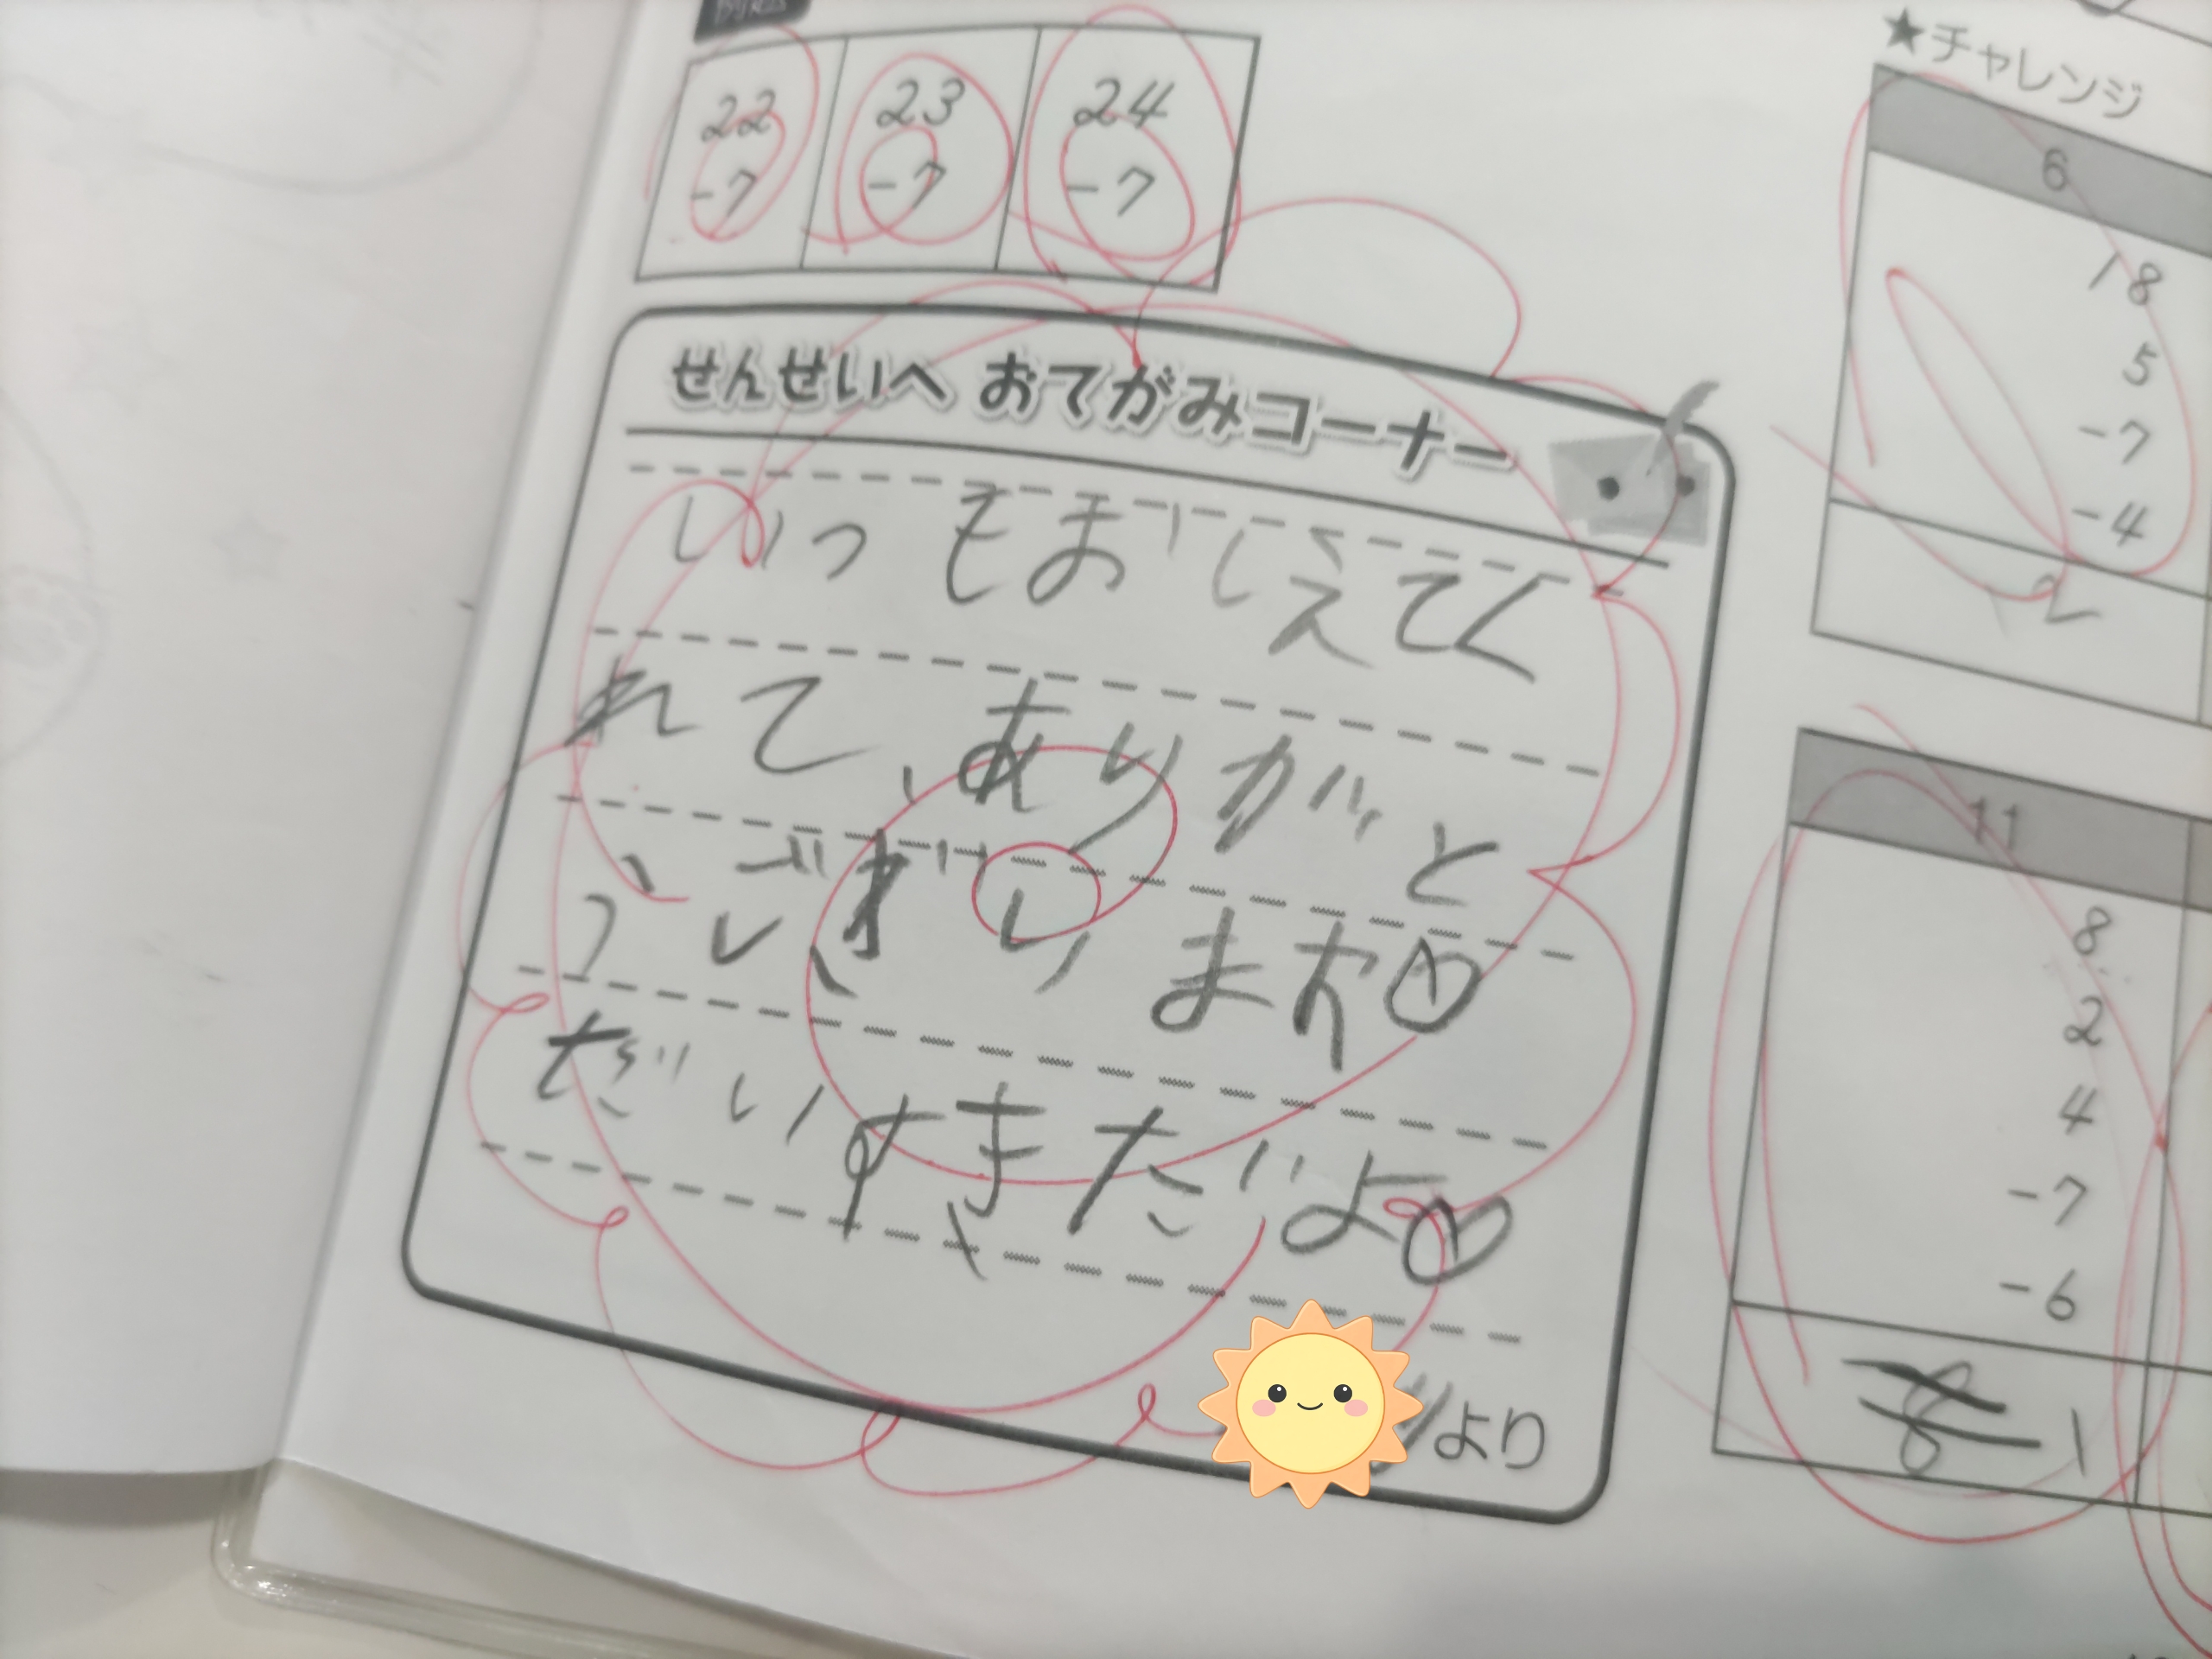 22
-7
23
-7
24
-7
せんせいへ おてがみコーナー
いつもおしえてく
れて、ありがと
うございます
だいすきだよ
より
★チャレンジ
6
18
5
-7
-4
11
8
2
4
-7
-6
1